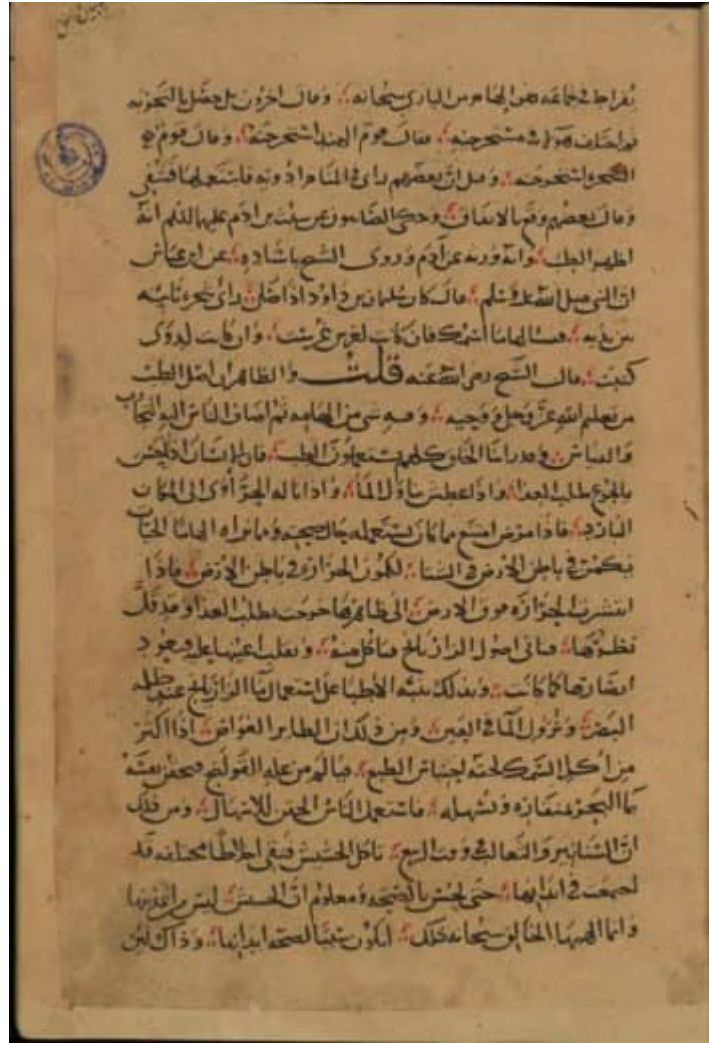 بقراط في جماعة هي إلهام من الباري سبحانه وقال آخرون بل حصل بالتجربة
ثم اختلف هؤلاء مستخرجه فقال قوم الهند استخرجته وقال قوم
السحرة استخرجته وقيل ان بعضهم راى في المنام ادوية فاستعملها فشفي
وقال بعضهم وقع بالاتفاق وحكى الصابيون عن شيث بن ادم عليهما السلام انه
اظهر الطب وانه ورثه عن آدم وروى الشيخ باسناده عن ابن عباس
ان النبي صلى الله عليه وسلم قال كان سليمان بن داود اذا صلى راى شجرة نابتة
بين يديه فيسالها ما اسمك فان كانت لغرس غرست وان كانت لدوى
كتبت قال الشيخ رضي الله عنه قلت والظاهر ان اصل الطب
من تعليم الله عز وجل ووحيه وفيه شي من الهامه ثم اضاف الناس اليه التجارب
والقياس وقد راينا الخلق كلهم يستعملون الطب فان الانسان اذا احس
بالجوع طلب الغذا واذا عطش تناول الما واذا ناله الحر أوى الى المكان
البارد فاذا مرض امتنع مما كان يستعمله حال صحته ومما نراه إلهاما الحيات
تكمن في باطن الارض في الشتا لكمون الحرارة في باطن الارض فاذا
انتشرت الحرارة فوق الارض الى ظاهرها خرجت بطلب الغذا وقد قل
نظرها فتاتي اصول الرازيانج فتاكل منه وتقلب اعينها عليه فيعود
ابصارها كما كانت وبذلك تنبه الاطبا على استعمال ما الرازيانج عند ظلمة
البصر ونزول الما في العين ومن ذلك ان الطاير الغواص اذا اكثر
من اكل السمك لحقه احتباس الطبع فيالم من علة القولنج فيحقن نفسه
بما البحر بمنقاره وتسهله فاستعمل الناس الحقن للاسهال ومن ذلك
ان السنانير والثعالب وقت الربيع تاكل الحشيش فتقي اخلاطا مختلفة قد
اجتمعت في ابدانها حتى تحس بالصحة ومعلوم ان الحشيش ليس من اغذيتها
وانما الهمها الخالق سبحانه ذلك ليكون سببا لصحة ابدانها وذاك لئن